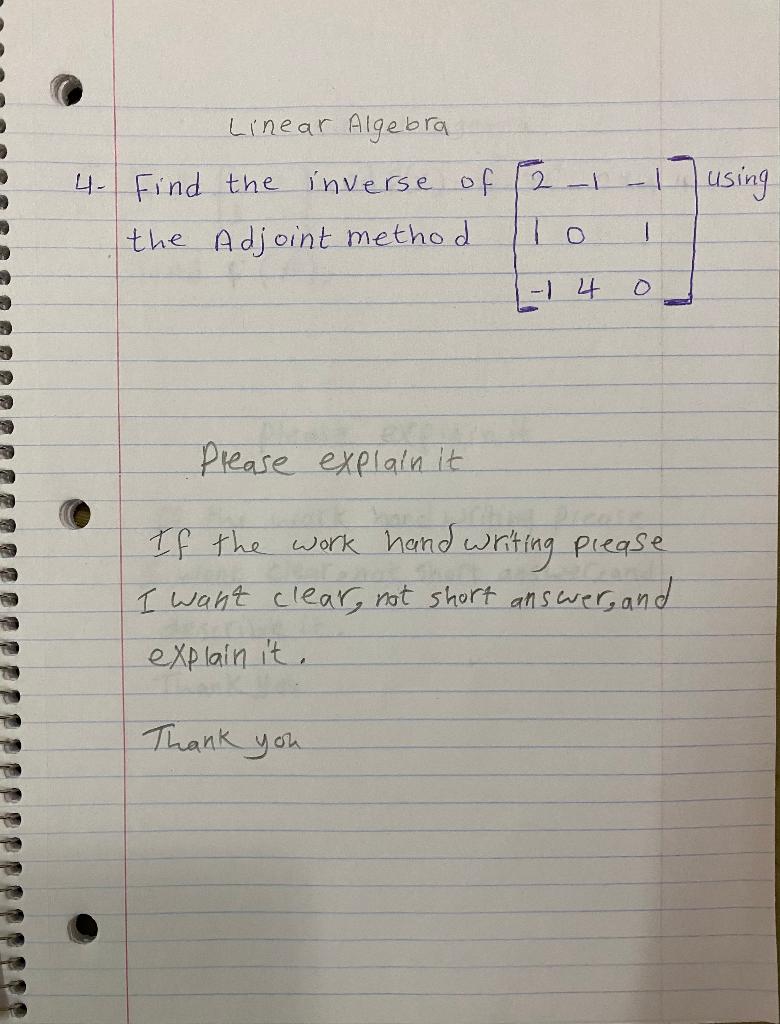 Linear Algebra
4- Find the inverse of [2 -1 -1] using
the Adjoint method [1 0 1]
[-1 4 0]
Please explain it
If the work hand writing please
I want clear, not short answer, and
explain it.
Thank you